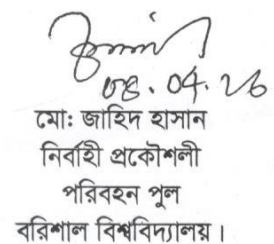 ০৪.০৫.২৬
মো: জাহিদ হাসান
নির্বাহী প্রকৌশলী
পরিবহন পুল
বরিশাল বিশ্ববিদ্যালয়।